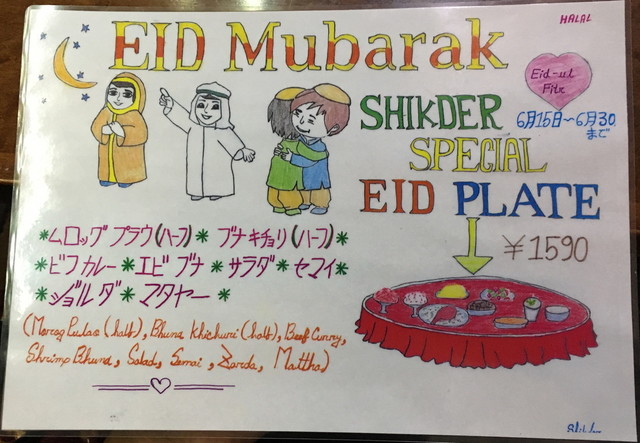 HALAL
EID Mubarak
Eid-ul
Fitr
SHIKDER
6月15日~6月30
まで
SPECIAL
EID PLATE
¥1590
*ムロッグ プラウ(ハーフ)* ブナ キチョリ(ハーフ)*
*ビフカレー*エビ ブナ *サラダ* セマイ*
*ジョルダ* マタヤー *
(Morog Pulao (half), Bhuna Khichuri (half), Beef Curry,
Shrimp Bhuna, Salad, Semai, Zarda, Mattha)